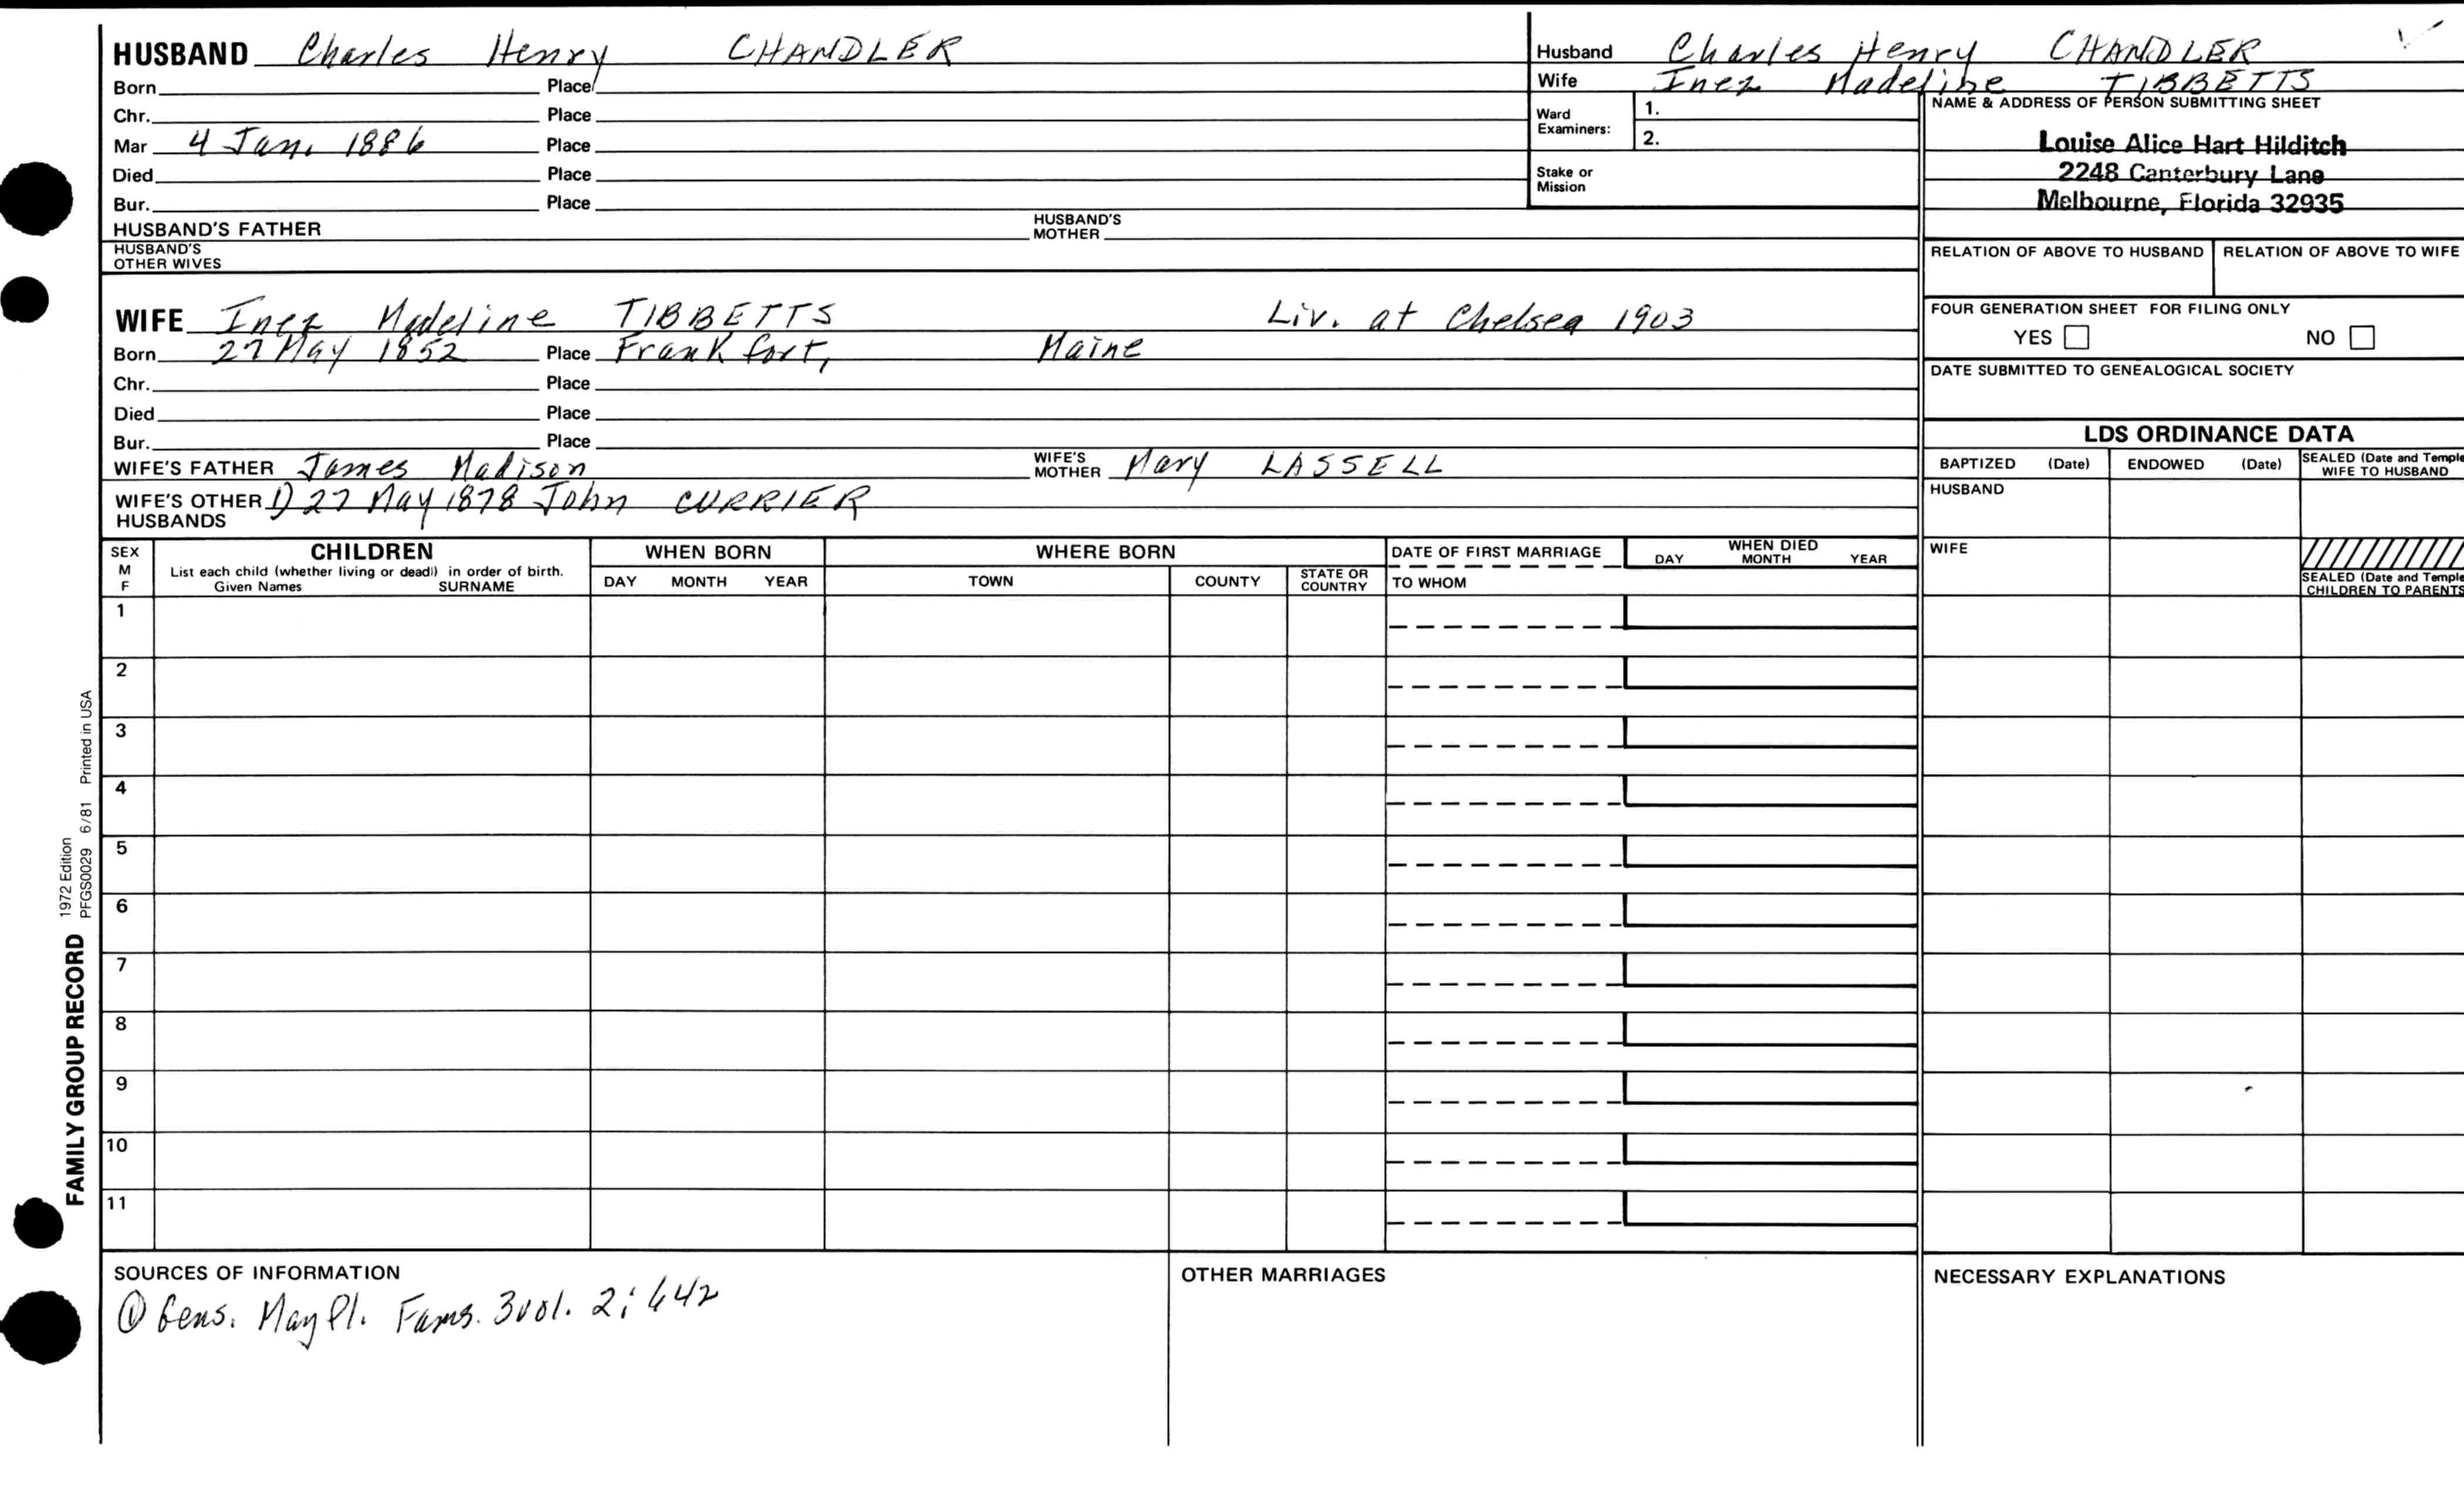 HUSBAND Charles Henry CHANDLER
Born Place
Chr. Place
Mar 4 Jan. 1886 Place
Died Place
Bur. Place
HUSBAND'S FATHER HUSBAND'S MOTHER
HUSBAND'S OTHER WIVES
Husband Charles Henry CHANDLER
Wife Inez Madeline TIBBETTS
Ward Examiners: 1.
2.
Stake or Mission
NAME & ADDRESS OF PERSON SUBMITTING SHEET
Louise Alice Hart Hilditch
2248 Canterbury Lane
Melbourne, Florida 32935
RELATION OF ABOVE TO HUSBAND RELATION OF ABOVE TO WIFE
FOUR GENERATION SHEET FOR FILING ONLY
YES NO
DATE SUBMITTED TO GENEALOGICAL SOCIETY
WIFE Inez Madeline TIBBETTS Liv. at Chelsea 1903
Born 27 May 1852 Place Frankfort, Maine
Chr. Place
Died Place
Bur. Place
WIFE'S FATHER James Madison WIFE'S MOTHER Mary LASSELL
WIFE'S OTHER HUSBANDS 1) 27 May 1878 John CURRIER
LDS ORDINANCE DATA
BAPTIZED (Date) ENDOWED (Date) SEALED (Date and Temple WIFE TO HUSBAND
HUSBAND
WIFE
SEALED (Date and Temple CHILDREN TO PARENTS
SEX M F
CHILDREN
List each child (whether living or dead) in order of birth.
Given Names SURNAME
WHEN BORN
DAY MONTH YEAR
WHERE BORN
TOWN COUNTY STATE OR COUNTRY
DATE OF FIRST MARRIAGE
TO WHOM
WHEN DIED
DAY MONTH YEAR
1
2
3
4
5
6
7
8
9
10
11
SOURCES OF INFORMATION
① Gens. May Pl. Fams. 3vol. 2: 642
OTHER MARRIAGES
NECESSARY EXPLANATIONS
FAMILY GROUP RECORD
1972 Edition
PFGS0029 6/81 Printed in USA